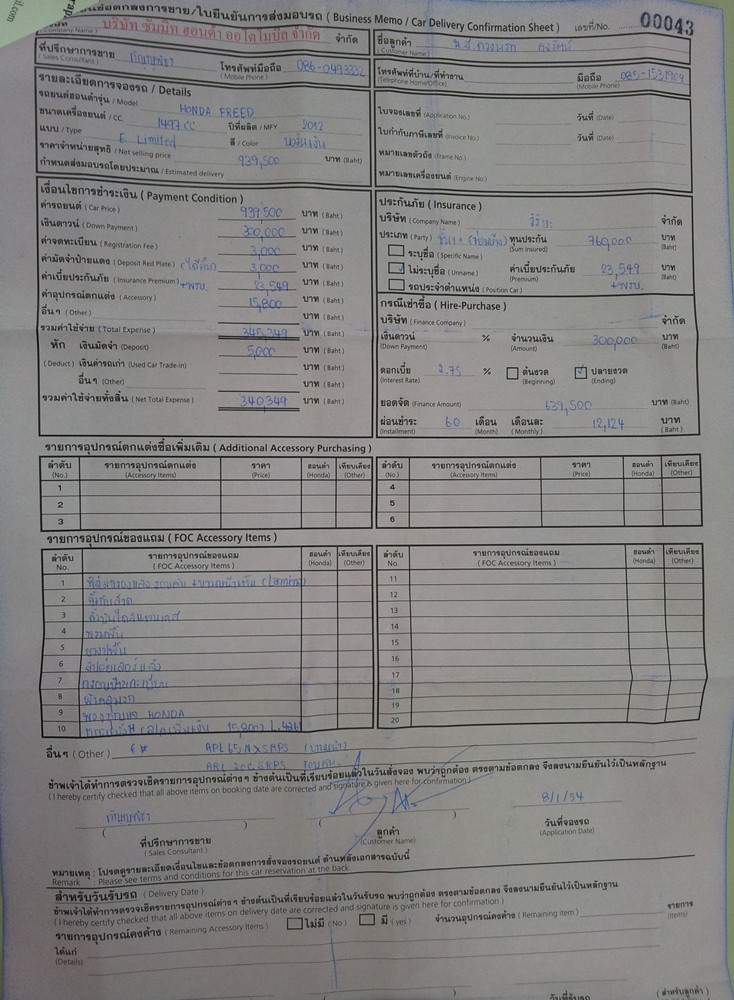 ันข้อตกลงการขาย/ใบยืนยันการส่งมอบรถ ( Business Memo / Car Delivery Confirmation Sheet ) เลขที่/No. 00043
(Company Name) บริษัท ซัมมิท ฮอนด้า ออโตโมบิล จำกัด จำกัด
ชื่อลูกค้า น.ส.
(Customer Name)
ที่ปรึกษาการขาย
( Sales Consultant ) โทรศัพท์มือถือ 086-0493332
(Mobile Phone)
โทรศัพท์ที่บ้าน/ที่ทำงาน
(Telephone Home/Office) มือถือ 085-1531909
(Mobile Phone)
รายละเอียดการจองรถ / Details
รถยนต์ฮอนด้ารุ่น / Model HONDA FREED
ขนาดเครื่องยนต์ / CC. 1497 CC ปีที่ผลิต / MFY 2012
แบบ / Type E Limited สี / Color
ราคาจำหน่ายสุทธิ / Net selling price 939,500 บาท (Baht)
กำหนดส่งมอบรถโดยประมาณ / Estimated delivery
ใบจองเลขที่ (Application No.) วันที่ (Date)
ใบกำกับภาษีเลขที่ (Invoice No.) วันที่ (Date)
หมายเลขตัวถัง (Frame No.)
หมายเลขเครื่องยนต์ (Engine No.)
เงื่อนไขการชำระเงิน ( Payment Condition )
ค่ารถยนต์ ( Car Price ) 939,500 บาท ( Baht )
เงินดาวน์ ( Down Payment ) 300,000 บาท ( Baht )
ค่าจดทะเบียน ( Registration Fee ) 3,000 บาท ( Baht )
ค่ามัดจำป้ายแดง ( Deposit Red Plate ) (ได้คืน) 3,000 บาท ( Baht )
ค่าเบี้ยประกันภัย ( Insurance Premium ) +พรบ. 23,549 บาท ( Baht )
ค่าอุปกรณ์ตกแต่ง ( Accessory ) 15,800 บาท ( Baht )
อื่น ๆ ( Other ) บาท ( Baht )
รวมค่าใช้จ่าย ( Total Expense ) 345,349 บาท ( Baht )
หัก เงินมัดจำ (Deposit) 5,000 บาท ( Baht )
( Deduct ) เงินค่ารถเก่า (Used Car Trade-in) บาท ( Baht )
อื่น ๆ (Other) บาท ( Baht )
รวมค่าใช้จ่ายทั้งสิ้น ( Net Total Expense ) 340,349 บาท ( Baht )
ประกันภัย ( Insurance )
บริษัท ( Company Name ) วิริยะ จำกัด
ประเภท ( Party ) ชั้น 1 ทุนประกัน 760,000 บาท
(Sum Insured) (Baht)
ระบุชื่อ (Specific Name)
ไม่ระบุชื่อ (Unname) ค่าเบี้ยประกันภัย 23,549 บาท
(Premium) +พรบ. (Baht)
รถประจำตำแหน่ง (Position Car)
กรณีเช่าซื้อ ( Hire-Purchase )
บริษัท ( Finance Company ) จำกัด
เงินดาวน์ % จำนวนเงิน 300,000 บาท
(Down Payment) (Amount) (Baht)
ดอกเบี้ย 2.75 % ต้นงวด ปลายงวด
(Interest Rate) (Beginning) (Ending)
ยอดจัด (Finance Amount) 639,500 บาท (Baht)
ผ่อนชำระ 60 เดือน เดือนละ 12,124 บาท
(Installment) (Month) ( Monthly ) ( Baht )
รายการอุปกรณ์ตกแต่งซื้อเพิ่มเติม ( Additional Accessory Purchasing )
ลำดับ รายการอุปกรณ์ตกแต่ง ราคา ฮอนด้า เทียบเคียง ลำดับ รายการอุปกรณ์ตกแต่ง ราคา ฮอนด้า เทียบเคียง
(No.) (Accessory Items) (Price) (Honda) (Other) (No.) (Accessory Items) (Price) (Honda) (Other)
1 4
2 5
3 6
รายการอุปกรณ์ของแถม ( FOC Accessory Items )
ลำดับ รายการอุปกรณ์ของแถม ฮอนด้า เทียบเคียง ลำดับ รายการอุปกรณ์ของแถม ฮอนด้า เทียบเคียง
No. ( FOC Accessory Items ) (Honda) (Other) No. ( FOC Accessory Items ) (Honda) (Other)
1 11
2 12
3 13
4 พรมพื้น 14
5 ยางปูพื้น 15
6 16
7 กรอบป้ายทะเบียน 17
8 ผ้าคลุมรถ 18
9 พวงกุญแจ HONDA 19
10 20
อื่นๆ ( Other )
ข้าพเจ้าได้ทำการตรวจเช็ครายการอุปกรณ์ต่าง ๆ ข้างต้นเป็นที่เรียบร้อยแล้วในวันสั่งจอง พบว่าถูกต้อง ตรงตามข้อตกลง จึงลงนามยืนยันไว้เป็นหลักฐาน
( I hereby certify checked that all above items on booking date are corrected and signature is given here for confirmation )
8/1/54
ที่ปรึกษาการขาย ลูกค้า วันที่จองรถ
( Sales Consultant ) (Customer Name) (Application Date)
หมายเหตุ : โปรดดูรายละเอียดเงื่อนไขและข้อตกลงการสั่งจองรถยนต์ ด้านหลังเอกสารฉบับนี้
Remark : Please see terms and conditions for this car reservation at the back
สำหรับวันรับรถ ( Delivery Date )
ข้าพเจ้าได้ทำการตรวจเช็ครายการอุปกรณ์ต่าง ๆ ข้างต้นเป็นที่เรียบร้อยแล้วในวันรับรถ พบว่าถูกต้อง ตรงตามข้อตกลง จึงลงนามยืนยันไว้เป็นหลักฐาน
( I hereby certify checked that all above items on delivery date are corrected and signature is given here for confirmation )
รายการอุปกรณ์คงค้าง ( Remaining Accessory Items ) ไม่มี ( No ) มี ( yes ) จำนวนอุปกรณ์คงค้าง ( Remaining item ) รายการ
(Items)
ได้แก่
(Details)
วันที่รับรถ ( สำหรับลูกค้า )